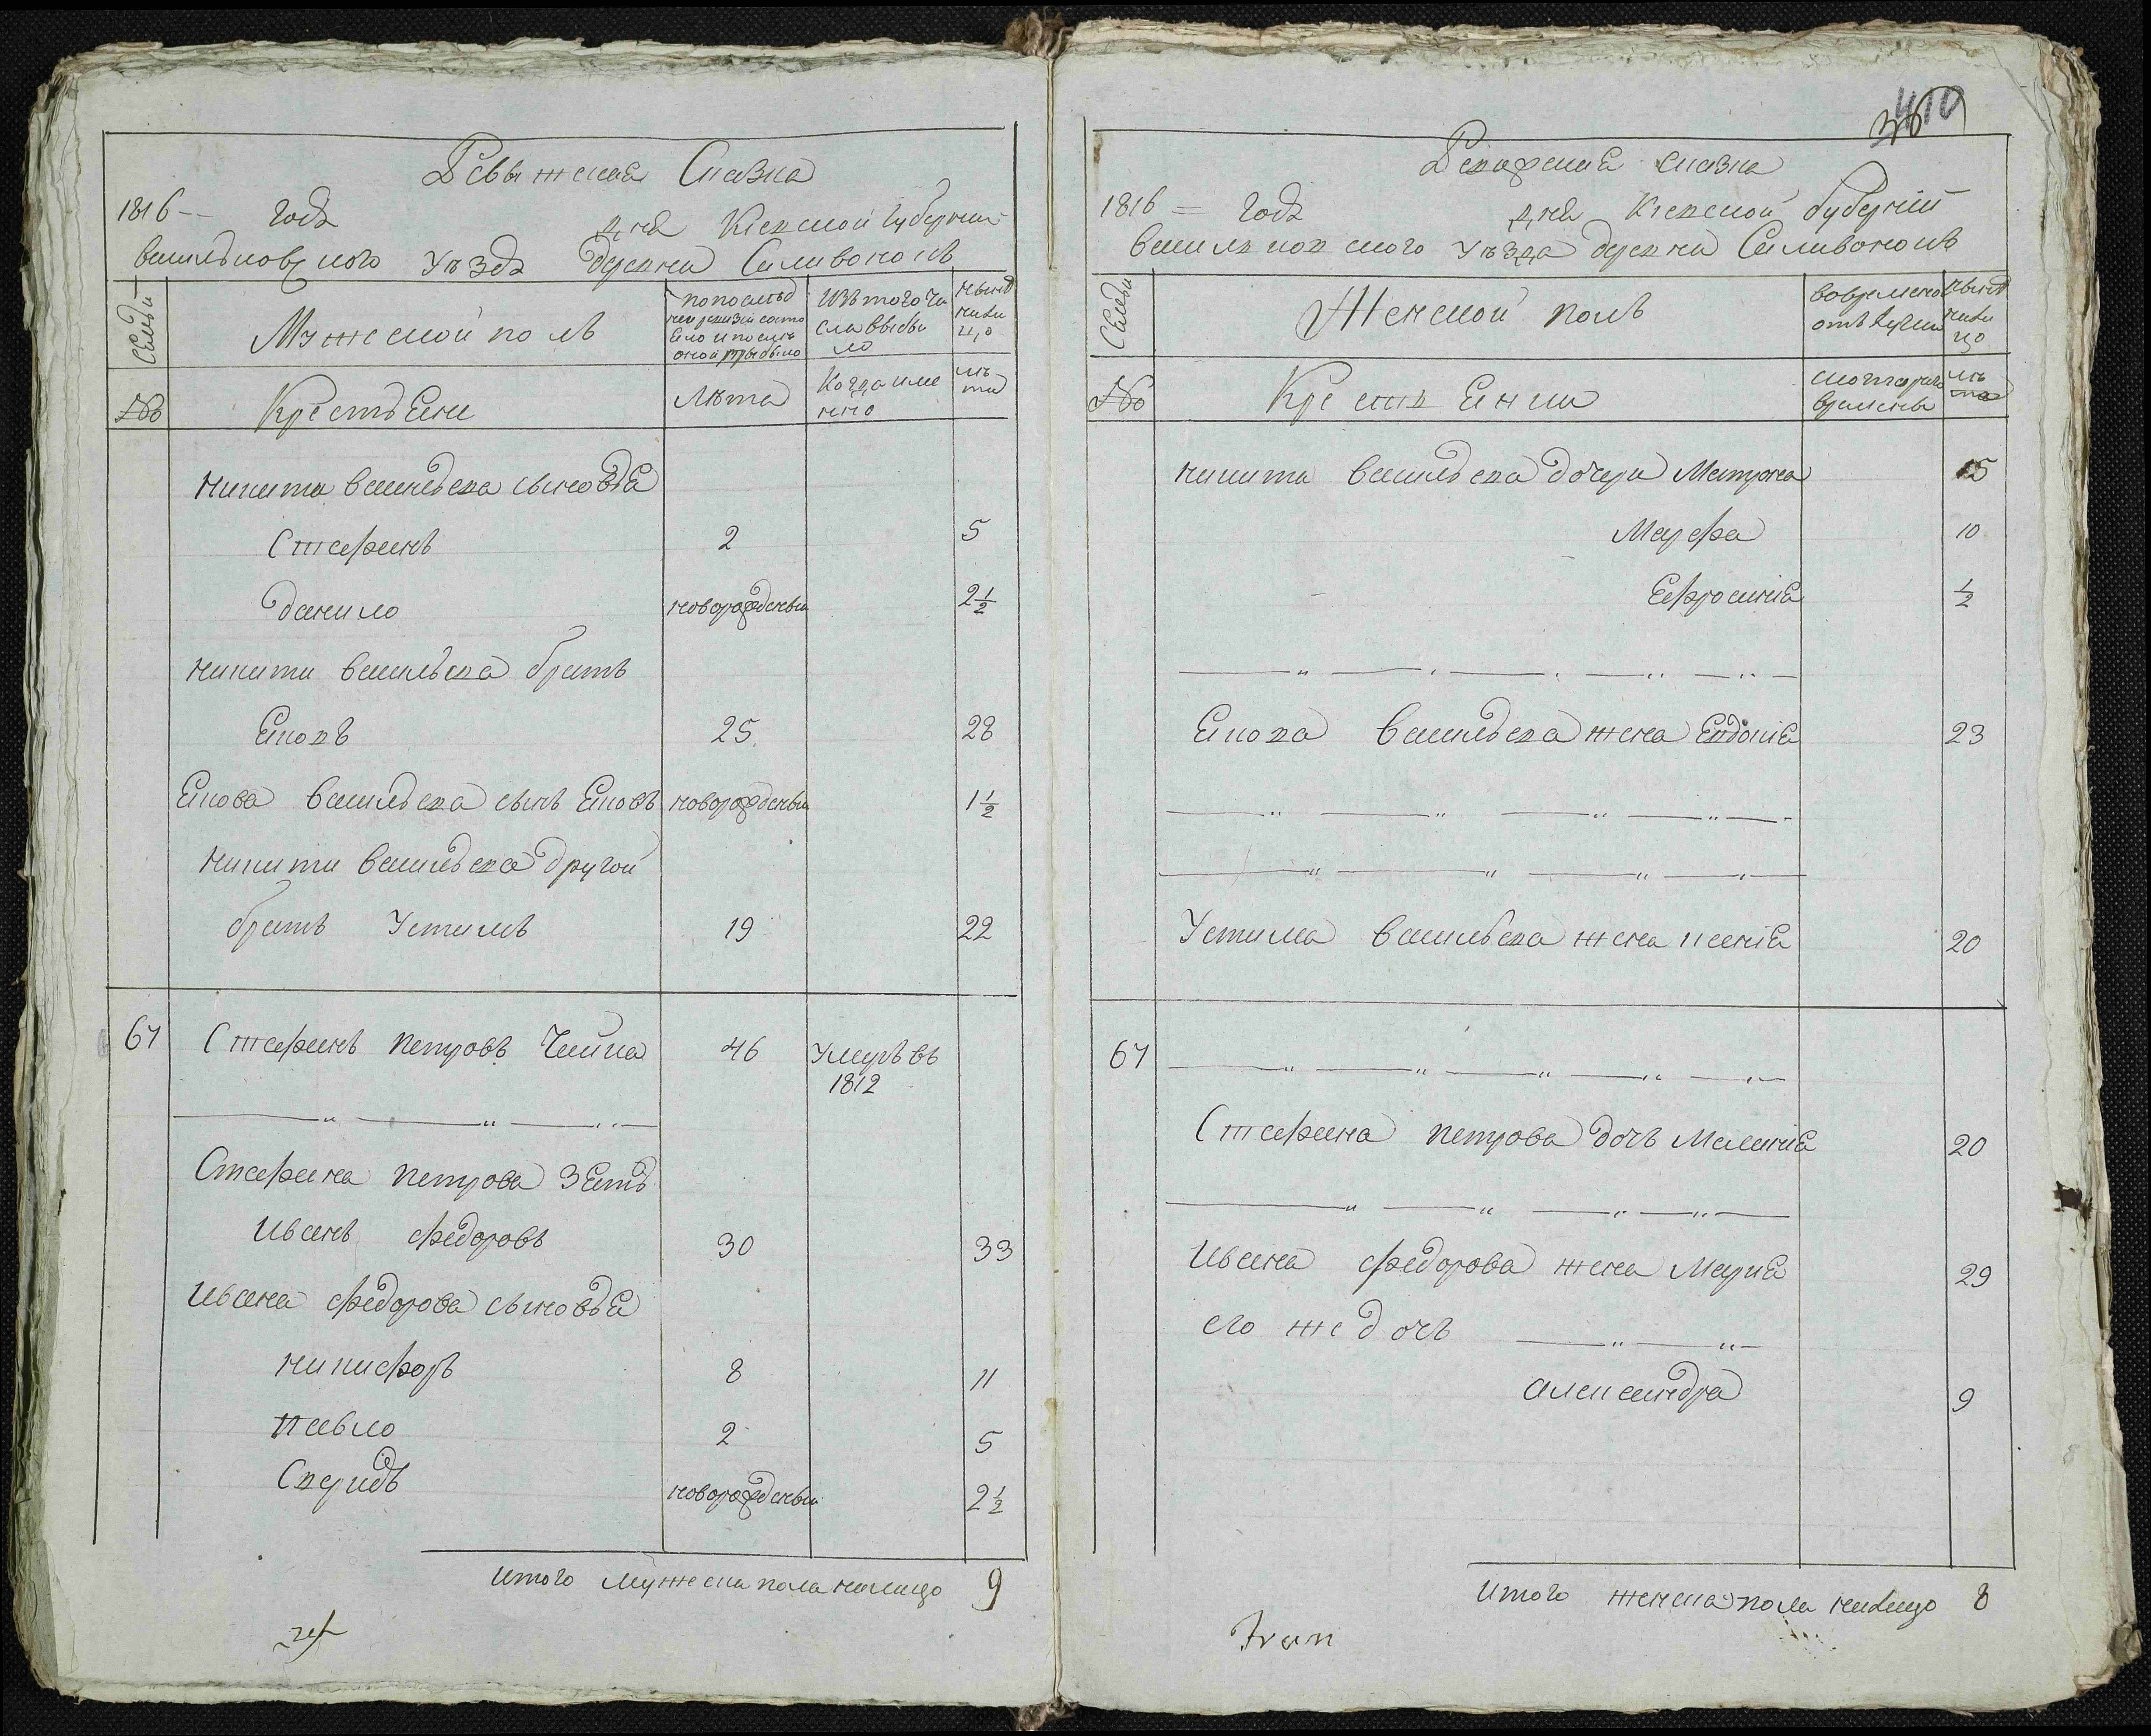 Ревыжская Сказка
1816 -- года дня Кіевской Губерніи
васильковского Уезда деревни Саливонокъ
Семьи
Мужеской полъ
попослед
ней ревизіи состо
яло и после
оной прибыло
Изътого чи
сла выбы
ло
ныне
нали
цо
№
Крестьяне
Лета
Когда име
нно
ле
та
никита васильева сыновья
Стефанъ 2 5
данило новорожденый 2½
никити васильева братъ
Яковъ 25 28
Якова васильева сынъ Яковъ новорожденый 1½
никити васильева другой
братъ Устимъ 19 22
67 Стефанъ петровъ Чайка 46 Умеръ въ
1812
Стефана петрова Зять
Иванъ федоровъ 30 33
Ивана федорова сыновья
никифоръ 8 11
павло 2 5
Свиридъ новорожденый 2½
итого мужеска пола налицо 9
410
Ревизская сказка
1816 = года дня Кіевской губерніи
васильковского Уезда деревни Саливонокъ
Семьи
Женской полъ
вовременой
отълучки
ныне
нали
цо
№
Крестьянки
скоторого
времены
ле
та
никита васильева дочери Матрона 15
Марфа 10
Ефросиніа ½
Якова васильева жена Евдокіа 23
Устима васильева жена ксеніа 20
67
Стефана петрова дочь Меланіа 20
Ивана федорова жена Маріа 29
его же дочь
александра 9
Итого женска пола налицо 8